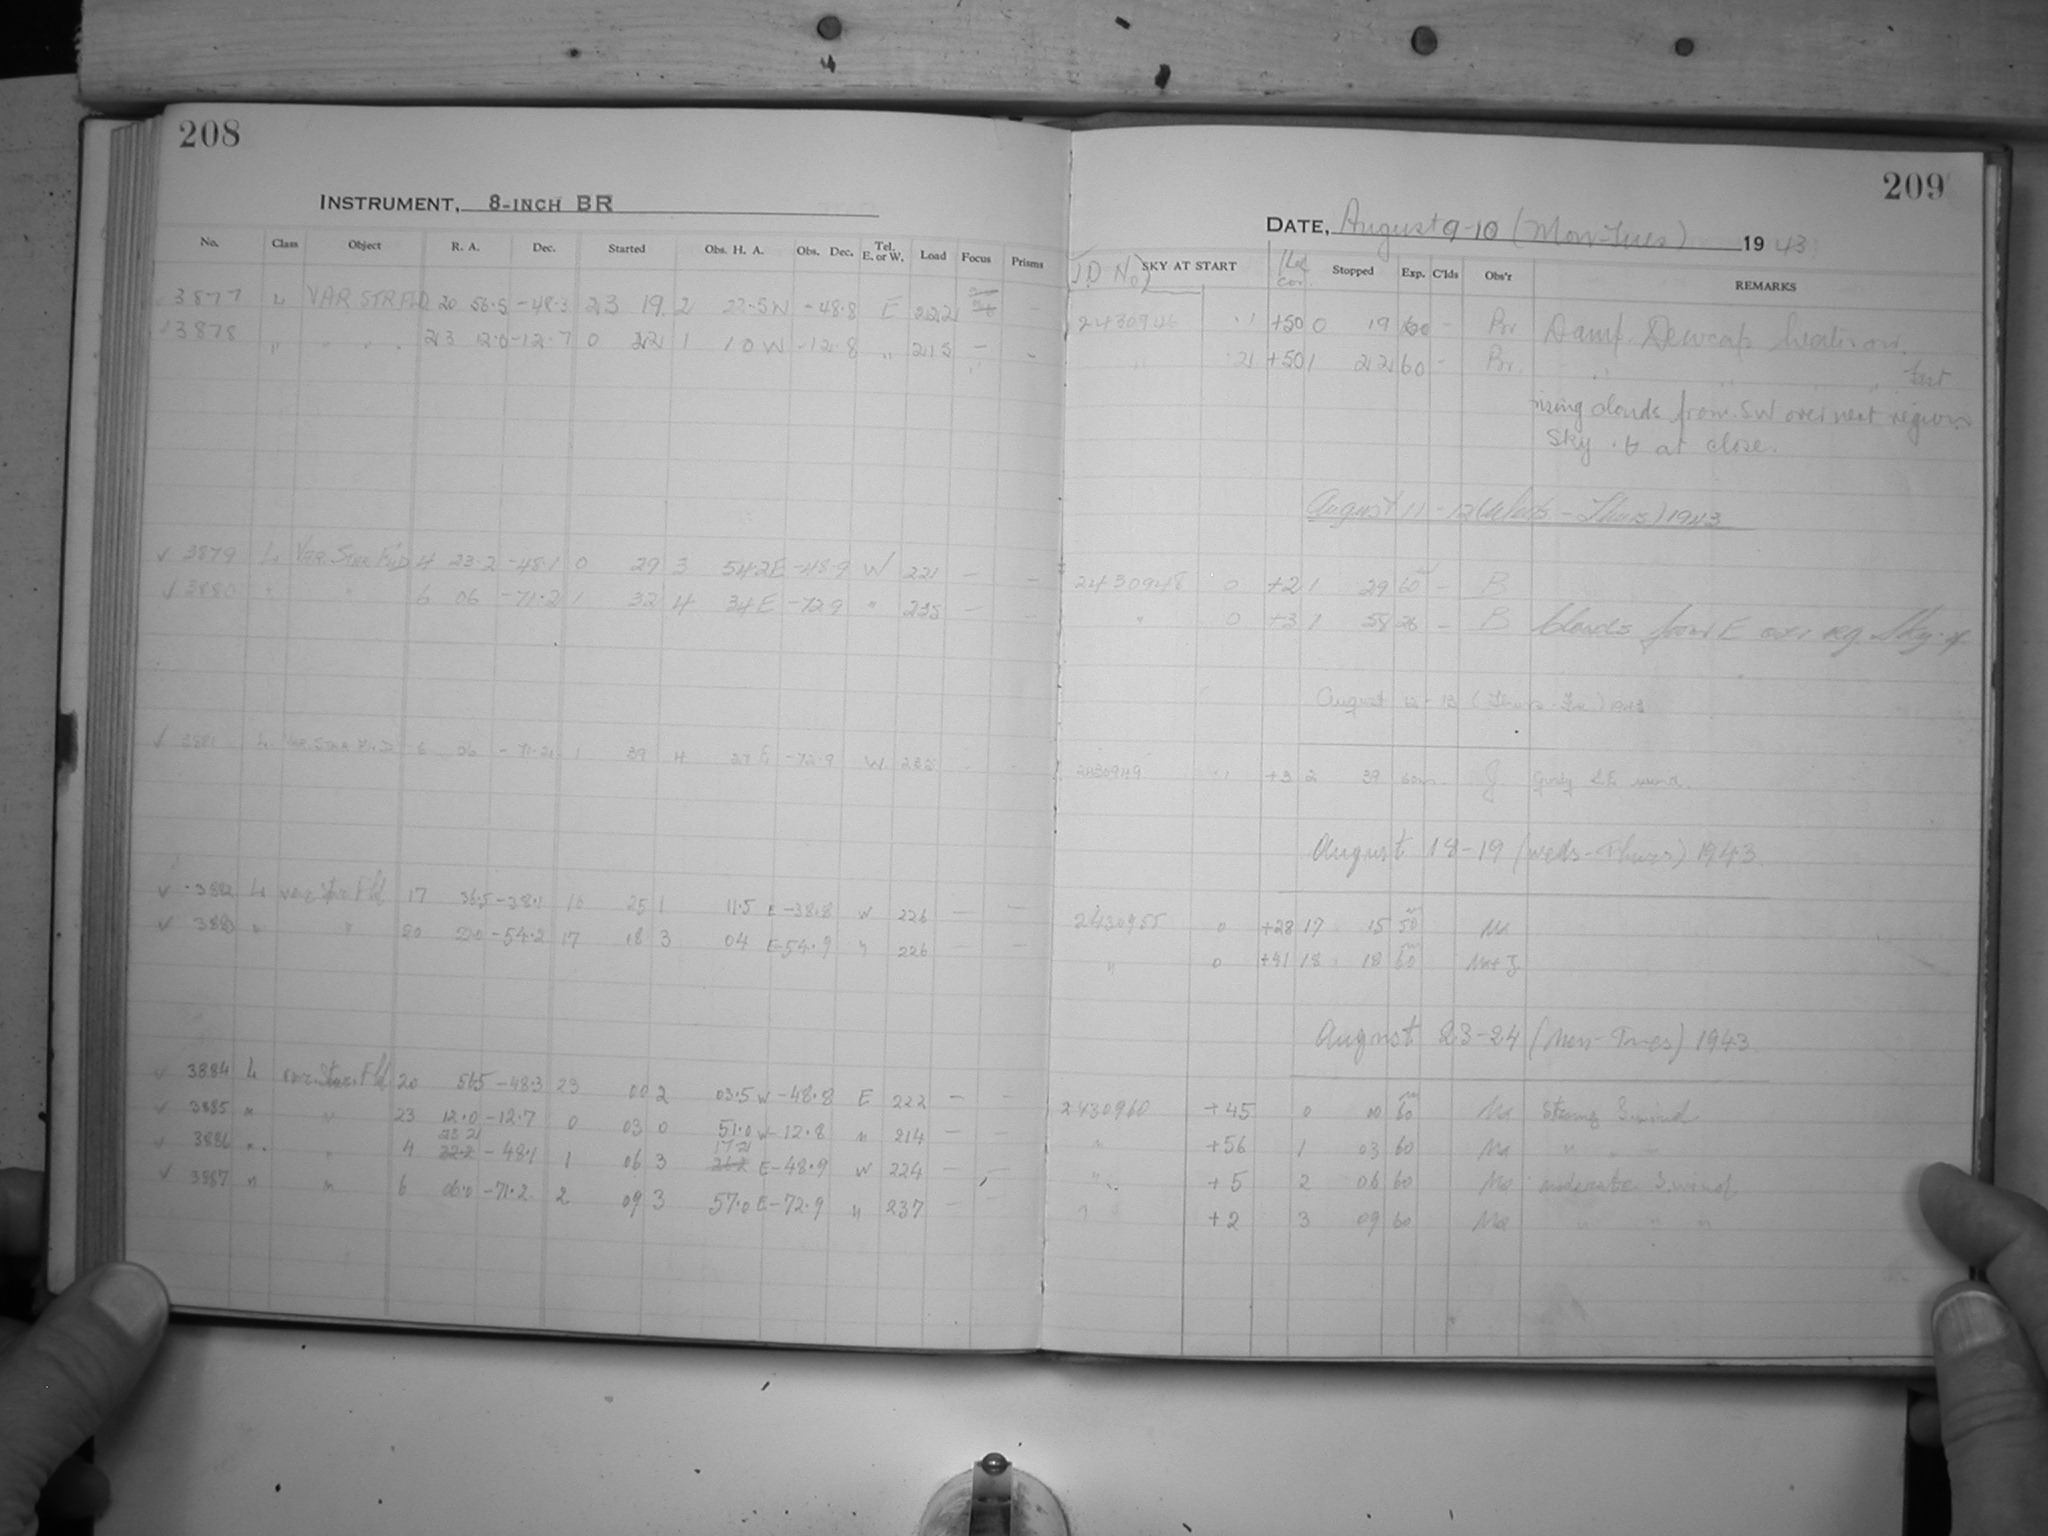 208
INSTRUMENT, 8-INCH BR
No. Class Object R. A. Dec. Started Obs. H. A. Obs. Dec. Tel. E. or W. Load Focus Prisms
3877 L VAR STR FLD 20 56.5 -48.3 23 19 2 22.5 W -48.8 E 222
3878 " " " 23 12.0 -12.7 0 22 1 10 W -12.8 " 215 —
3879 L Var. Star Fld 4 23.2 -48.1 0 29 3 54.2E -48.9 W 221 — —
3880 " " 6 06 -71.2 1 32 4 34E -72.9 " 235 — —
3881 L Var. Star Fld 6 06 -71.2 1 39 4 27 E -72.9 W 235 - -
3882 L var. star Fld 17 36.5 -38.1 16 25 1 11.5 E -38.8 W 226 — —
3883 " " 20 20 -54.2 17 18 3 04 E -54.9 " 226 — —
3884 L var. Star. Fld 20 56.5 -48.3 23 00 2 03.5 W -48.8 E 222 — —
3885 " " 23 12.0 -12.7 0 03 0 51.0 W -12.8 " 214 — —
23 21 17 21
3886 " " 4 22.2 -48.1 1 06 3 26.2 E -48.9 W 224 — —
3887 " " 6 06.0 -71.2 2 09 3 57.0 E -72.9 " 237 — —
209
DATE, August 9-10 (Mon-Tues) 1943
J.D. No. SKY AT START Stopped Exp. C'lds Obs'r REMARKS
2430946 .1 +50 0 19 60 - Par Damp. Dewcap heater on.
" .2 +50 1 22 60 - Par. " " " " Fast
rising clouds from SW over next region
Sky .6 at close.
August 11-12 (Weds - Thurs) 1943
2430948 0 +2 1 29 60 - B
" 0 +3 1 58 26 - B Clouds from E over reg Sky
August 12-13 (Thurs-Fri) 1943
2430949 .1 +3 2 39 60m J Gusty SE wind.
August 18-19 (Weds-Thurs) 1943
2430955 0 +28 17 15 50m Ma
" 0 +41 18 18 60m Ma+J
August 23-24 (Mon-Tues) 1943
2430960 +45 0 00 60m Ma Strong S wind
" +56 1 03 60 Ma " " "
" +5 2 06 60 Ma moderate S. wind.
" +2 3 09 60 Ma " " "